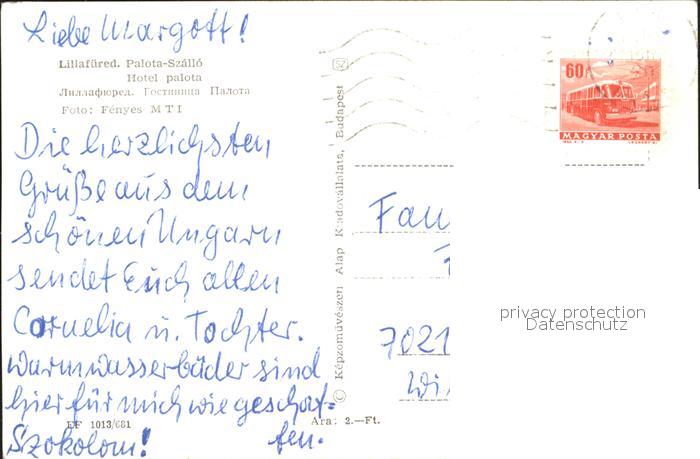 Liebe Margott!
Lillafüred. Palota-Szálló
Hotel palota
Лиллафюред. Гостиница Палота
Foto: Fényes MTI
Die herzlichsten
Grüße aus dem
schönen Ungarn
sendet Euch allen
Cornelia u. Tochter.
Warmwasserbäder sind
hier für mich wie geschaf=
fen.
Szokolom!
EF 1013/681
Ára: 2.–Ft.
© Képzőművészeti Alap Kiadóvállalata, Budapest
60
MAGYAR POSTA
Fam
7021
privacy protection
Datenschutz